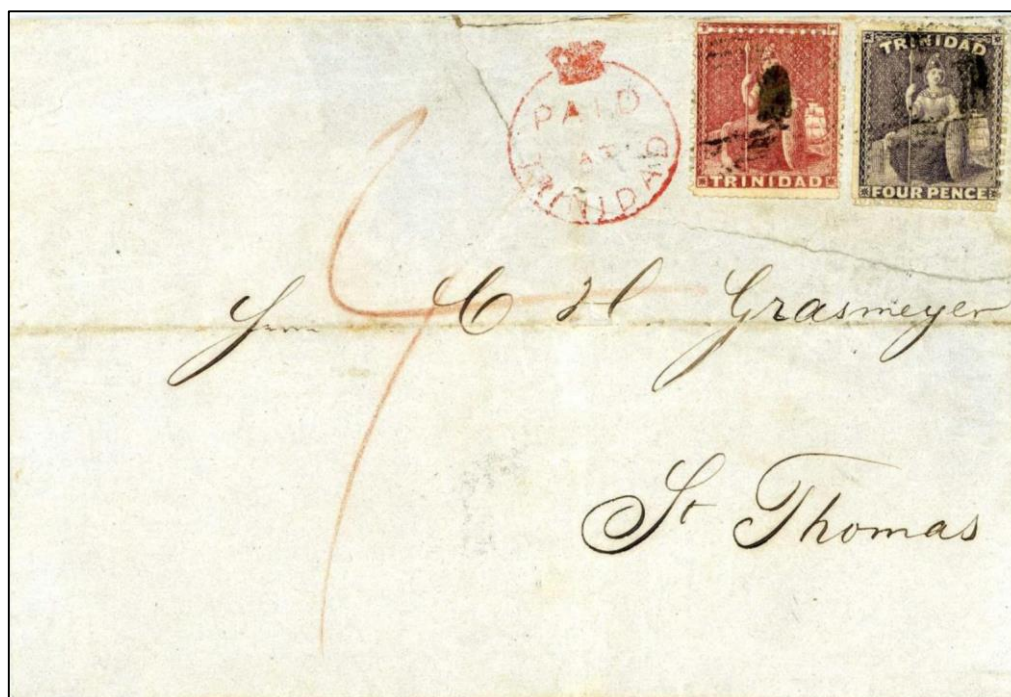 PAID
AT
TRINIDAD
TRINIDAD
TRINIDAD
FOUR PENCE
4
C H Grasmeyer
St Thomas